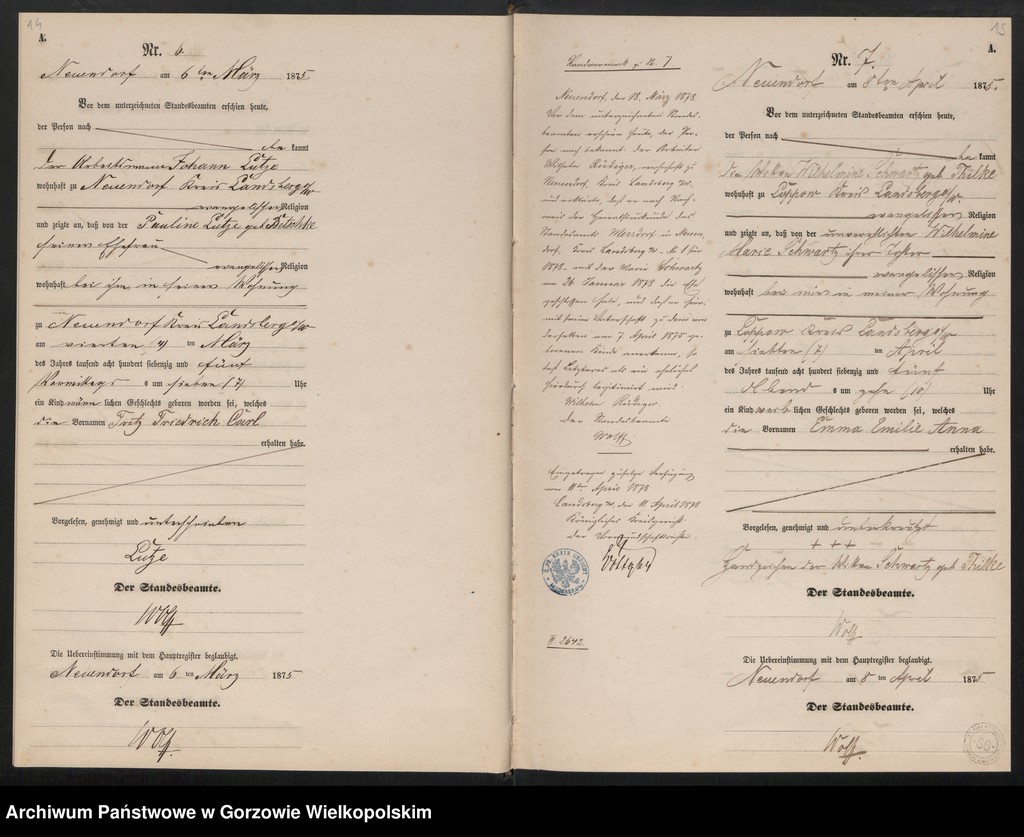 14
A.
Nr. 6.
Neuendorf am 6ten März 1875.
Vor dem unterzeichneten Standesbeamten erschien heute,
der Person nach
be kannt
der Arbeitsmann Johann Lutze
wohnhaft zu Neuendorf Kreis Landsberg a/W
evangelischer Religion
und zeigte an, daß von der Pauline Lutze geb.
seiner Ehefrau
evangelischer Religion
wohnhaft bei ihm in seiner Wohnung
zu Neuendorf Kreis Landsberg a/W
am vierten (4) ten März
des Jahres tausend acht hundert siebenzig und fünf
Vormittags um sieben (7) Uhr
ein Kind männ lichen Geschlechts geboren worden sei, welches
die Vornamen Fritz Friedrich Carl
erhalten habe.
Vorgelesen, genehmigt und unterschrieben
Lutze
Der Standesbeamte.
Wolff
Die Uebereinstimmung mit dem Hauptregister beglaubigt.
Neuendorf am 6 ten März 1875
Der Standesbeamte.
Wolff.
Randvermerk z. N. 7.
Neuendorf, den 18. März 1878
Vor dem unterzeichneten Standes-
beamten erschien heute, der Per-
son nach bekannt, der Arbeiter
Wilhelm Rüdiger, wohnhaft zu
Neuendorf, Kreis Landsberg a/W.
und erklärte, daß er nach
der Heiratsurkunde des
Standesamts in Neuen-
dorf, Kreis Landsberg a/W. N. 1 für
1878. mit der Marie Schwartz
am 26 Januar 1878 die Ehe
geschlossen habe, und daß er hier-
mit seine Vaterschaft zu dem von
derselben am 7. April 1875 ge-
borenen Kinde anerkenne, so
daß Letzteres als ein eheliches
hierdurch legitimirt wird.
Wilhelm Rüdiger
Der Standesbeamte
Wolff
Eingetragen zufolge Verfügung
vom 11ten April 1878
Landsberg a/W. den 11 April 1878
Königliches Kreisgericht
der Vormundschaftsrichter.
II. 2642
15
A.
Nr. 7.
Neuendorf am 8ten April 1875.
Vor dem unterzeichneten Standesbeamten erschien heute,
der Person nach
be kannt
die Witwe Wilhelmine Schwartz geb Thilke
wohnhaft zu Loppow Kreis Landsberg a/W.
evangelischer Religion
und zeigte an, daß von der unverehelichten Wilhelmine
Marie Schwartz ihrer Tochter
evangelischer Religion
wohnhaft bei mir in meiner Wohnung
zu Loppow Kreis Landsberg a/W
am siebten (7) ten April
des Jahres tausend acht hundert siebenzig und fünf
Abend s um zehn (10) Uhr
ein Kind weib lichen Geschlechts geboren worden sei, welches
die Vornamen Emma Emilie Anna
erhalten habe.
Vorgelesen, genehmigt und unterkreuzt
+ + +
Handzeichen der Witwe Schwartz geb Thilke
Der Standesbeamte.
Wolff
Die Uebereinstimmung mit dem Hauptregister beglaubigt.
Neuendorf am 8 ten April 1875
Der Standesbeamte.
Wolff.
66
Archiwum Państwowe w Gorzowie Wielkopolskim